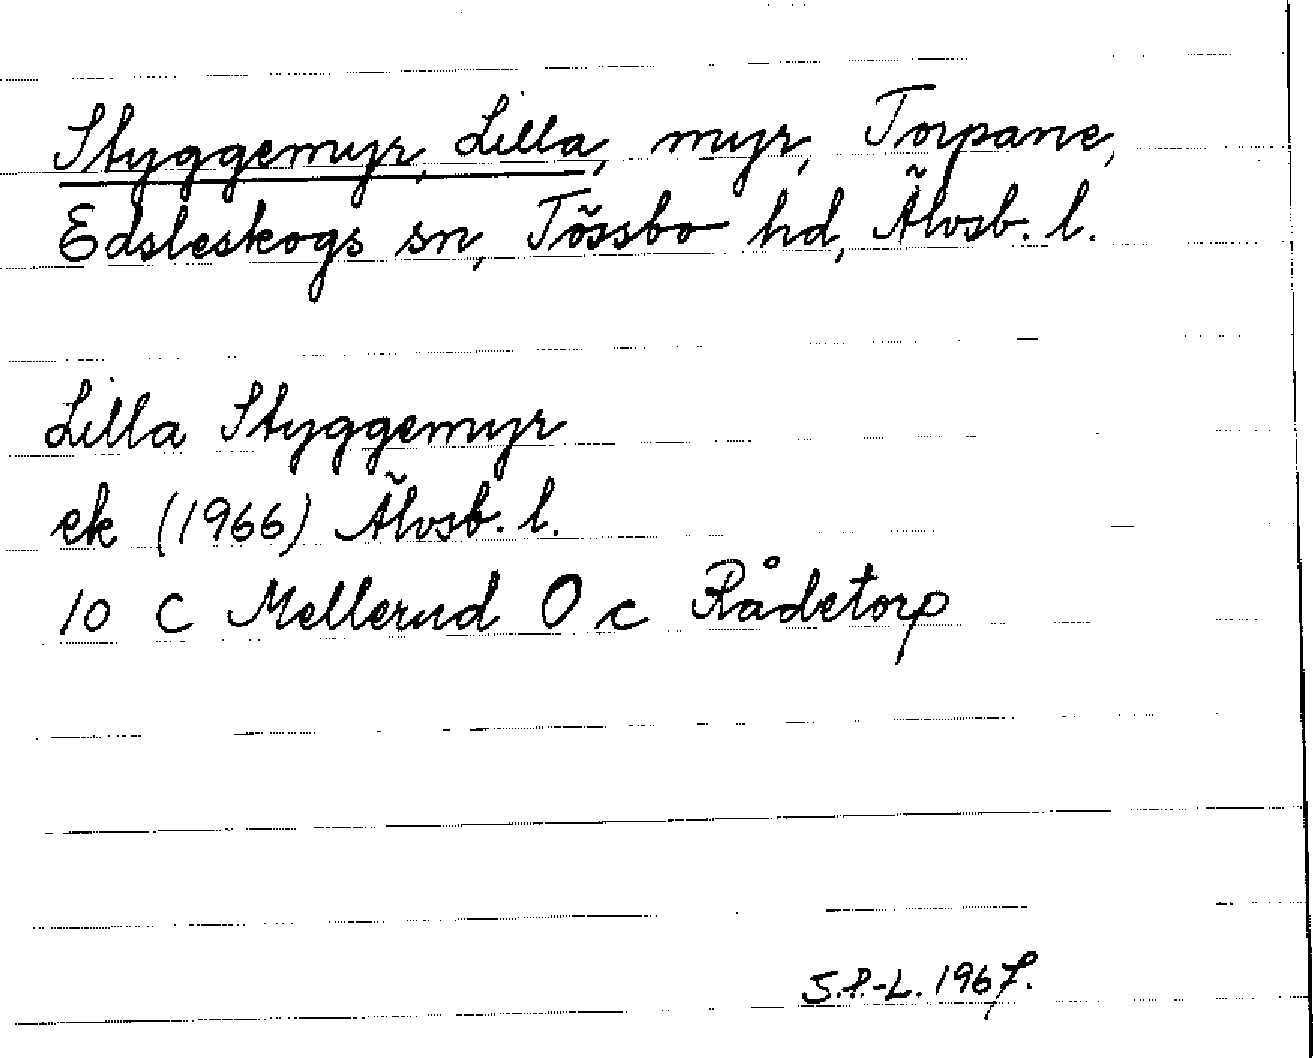 Styggemyr, Lilla, myr, Torpane,
Edsleskogs sn, Tössbo hd, Älvsb. l.
Lilla Styggemyr
ek (1966) Älvsb. l.
10 C Mellerud O c Rådetorp
S.P.-L. 1967.